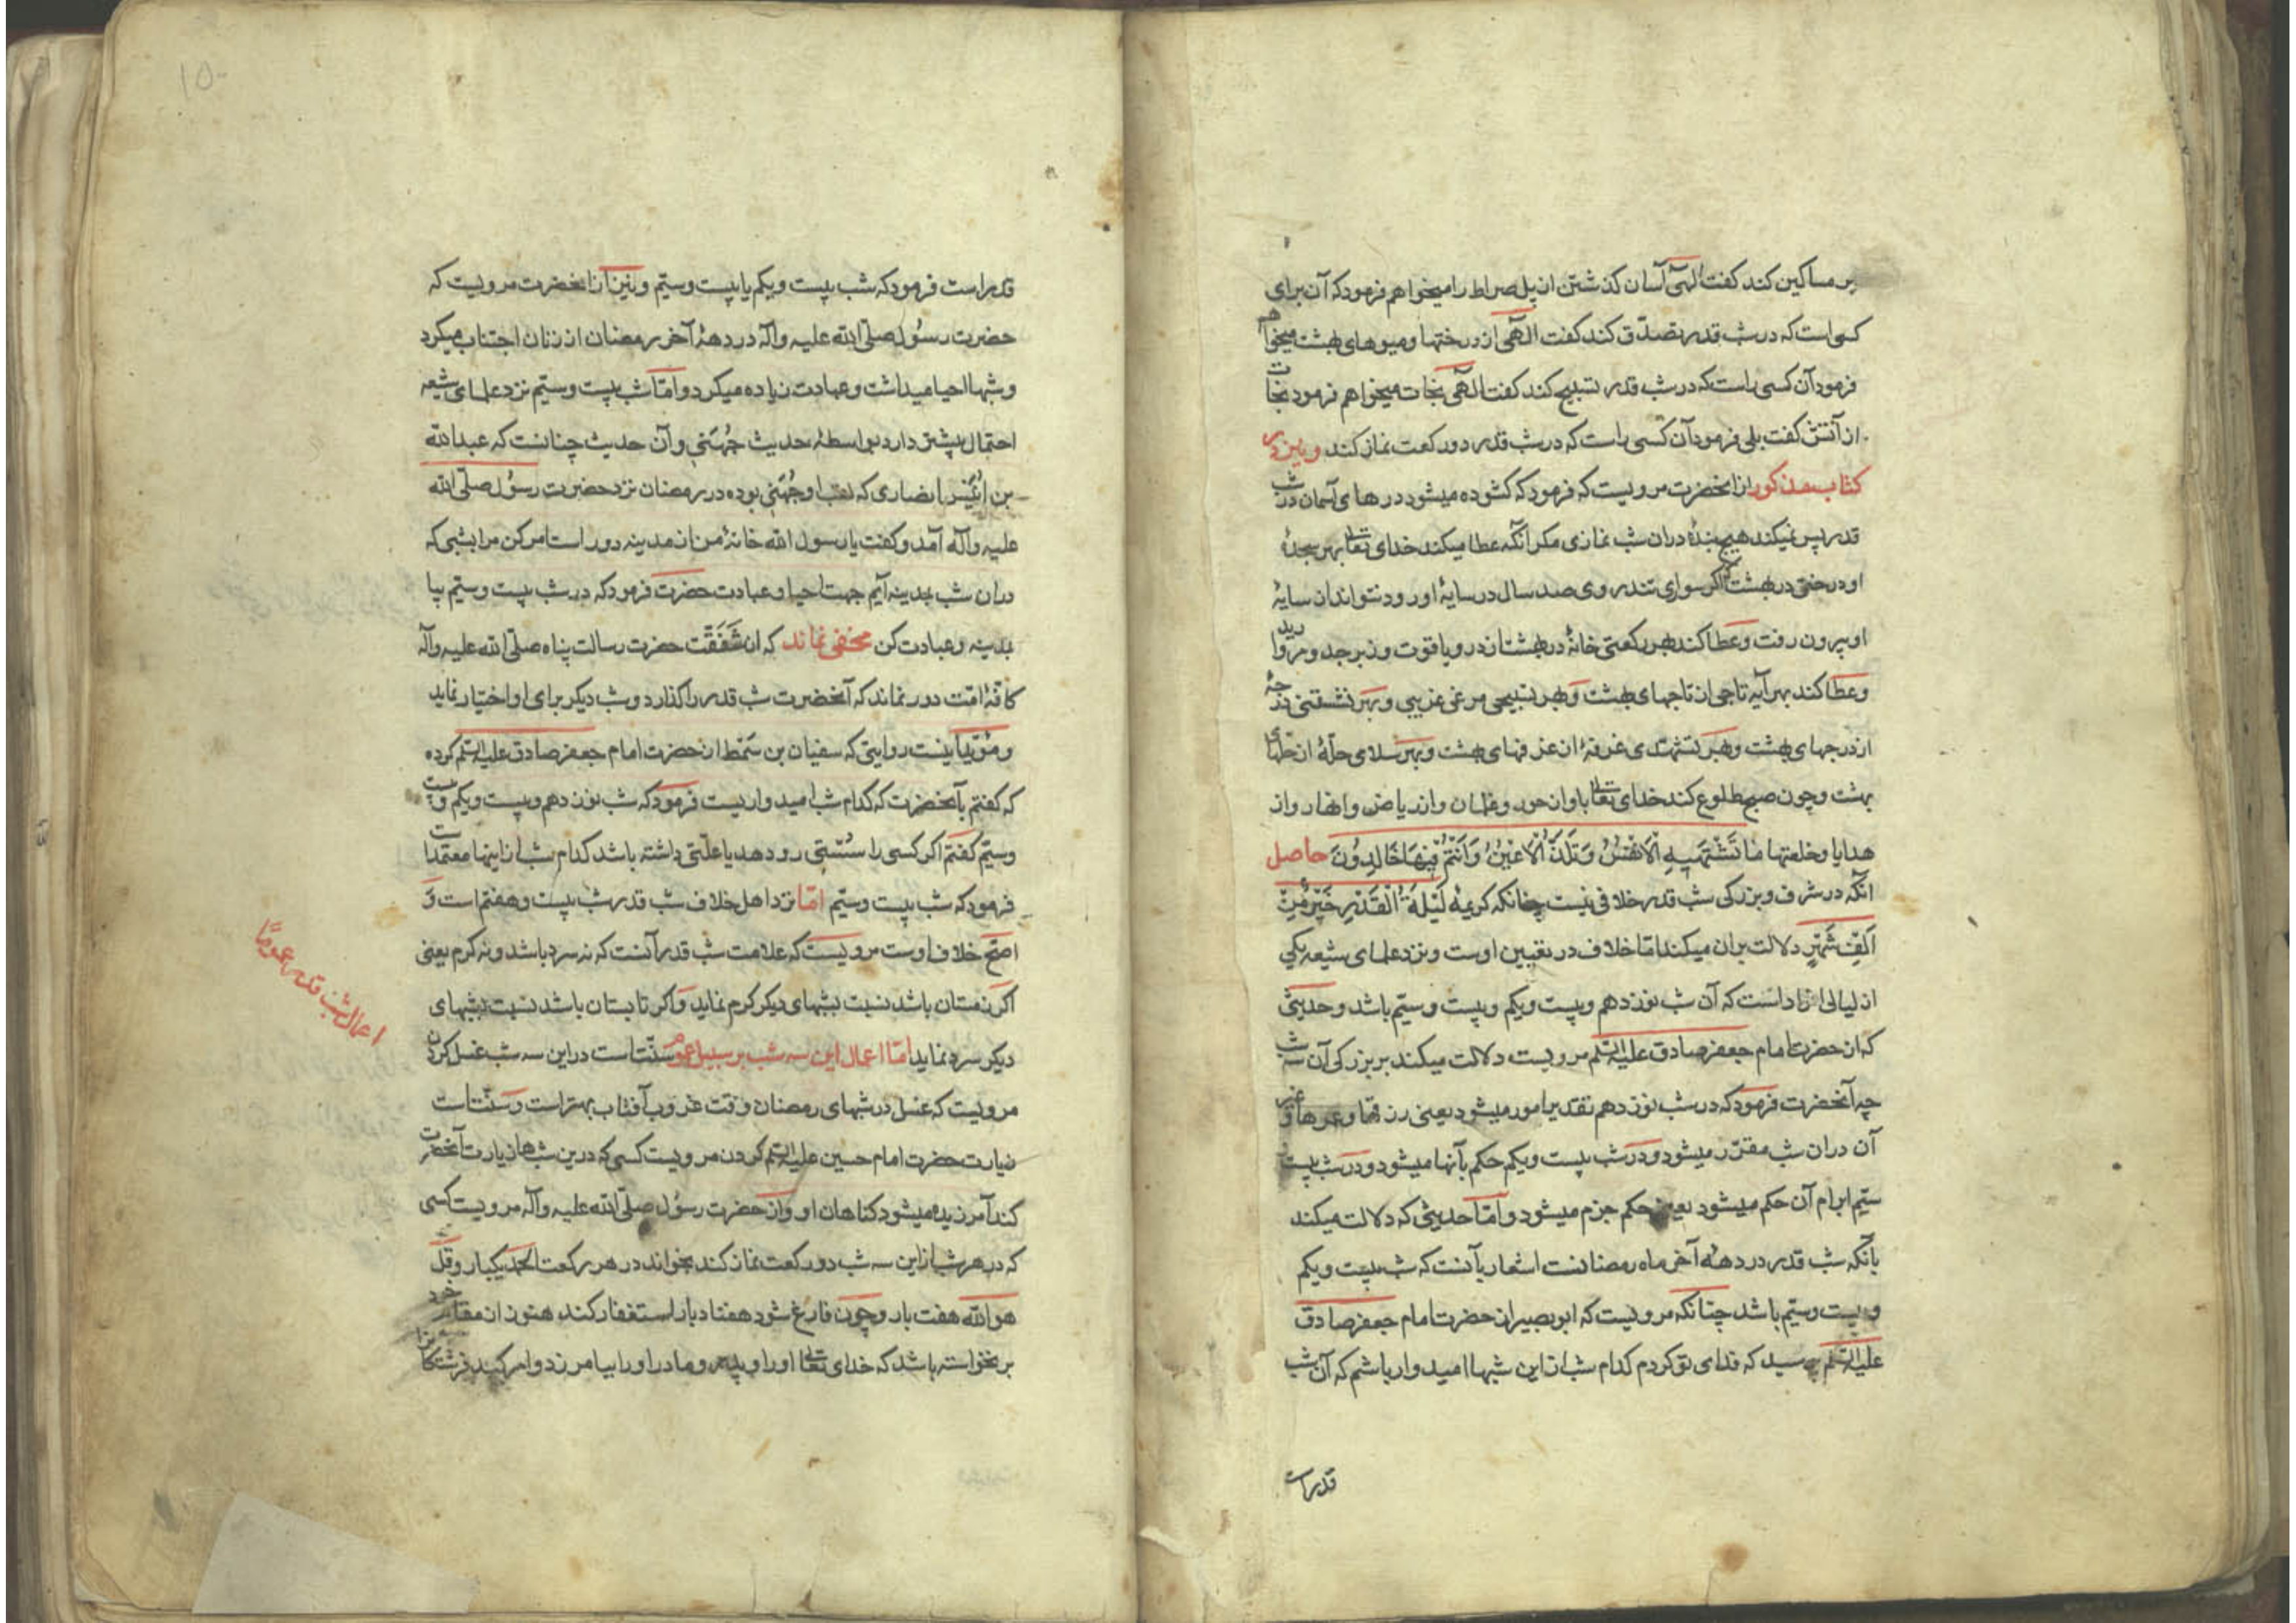 بر مساکین کند کفت الهی آسان کذشتن از پل صراط را میخواهم فرمود که آن برای
کسی است که در شب قدر تصدّق کند کفت الهی از درختها و میوهای بهشت میخواهم
فرمود آن کسی راست که در شب قدر تسبیح کند کفت الهی نجات میخواهم فرمود نجات
از آتش کفت بلی فرمود آن کسی راست که در شب قدر دو رکعت نماز کند و نیز در
کتاب مذکور از انحضرت مرویست که فرمود که کشوده میشود درهای آسمان در شب
قدر پس نمیکند هیچ بندهٔ دران شب نمازی مکر آنکه عطا میکند خدای تعالی بهر سجدهٔ
او درختی در بهشت که اکر سواری تند رو صد سال در سایهٔ او رود نتواند از سایهٔ
او بیرون رفت و عطا کند بهر رکعتی خانهٔ در بهشت از در و یاقوت و زبرجد و مروارید
و عطا کند بهر آیه تاجی از تاجهای بهشت و بهر تسبیحی مرغی غریبی و بهر نشستنی درجهٔ
از درجهای بهشت و بهر تشهّدی غرفهٔ از غرفهای بهشت و بهر سلامی حلّهٔ از حلّهای
بهشت و چون صبح طلوع کند خدای تعالی باو از حور و غلمان و از ریاض و انهار و از
هدایا و خلعتها ما تَشْتَهِیهِ الْاَنْفُسُ وَ تَلَذُّ الْاَعْیُنُ وَ اَنْتُمْ فِیهَا خَالِدُونَ حاصل
انکه در شرف و بزرکی شب قدر خلافی نیست چنانکه کریمهٔ لَیْلَةُ الْقَدْرِ خَیْرٌ مِنْ
اَلْفِ شَهْرٍ دلالت بران میکند امّا خلاف در تعیین اوست و نزد علمای شیعه یکی
از لیالی افراد است که آن شب نوزدهم و بیست و یکم و بیست و سیّم باشد و حدیثی
که از حضرت امام جعفر صادق علیه السّلم مرویست دلالت میکند بر بزرکی آن سه شب
چه آنحضرت فرمود که در شب نوزدهم تقدیر امور میشود یعنی رزقها و عمرها و غیر
آن دران شب مقرّر میشود و در شب بیست و یکم حکم بآنها میشود و در شب بیست
سیّم ابرام آن حکم میشود یعنی حکم جزم میشود و امّا حدیثی که دلالت میکند
بآنکه شب قدر در دههٔ آخر ماه رمضانست اشعار بآنست که شب بیست و یکم
و بیست و سیّم باشد چنانکه مرویست که ابو بصیر از حضرت امام جعفر صادق
علیه السّلم پرسید که فدای تو کردم کدام شب از این شبها امیدوار باشم که آن شب
قدر است
قدر است فرمود که شب بیست و یکم یا بیست و سیّم و نیز از انحضرت مرویست که
حضرت رسُول صلّی الله علیه وآله در دههٔ آخر رمضان از زنان اجتناب میکرد
و شبها احیا میداشت و عبادت زیاده میکرد و امّا شب بیست و سیّم نزد علمای شیعه
احتمال بیشتر دارد بواسطهٔ حدیث جُهَنی و آن حدیث چنانست که عبد الله
بن اُنَیْس انصاری که لقب او جُهَنی بوده در رمضان نزد حضرت رسُول صلّی الله
علیه وآله آمد و کفت یا رسول الله خانهٔ من از مدینه دور است امر کن مرا بشبی که
دران شب بمدینه آیم جهت احیا و عبادت حضرت فرمود که در شب بیست و سیّم بیا
بمدینه و عبادت کن مخفی نماند که از شَفَقَت حضرت رسالت پناه صلّی الله علیه وآله
کافّهٔ امّت دور نماند که آنحضرت شب قدر را کذارد و شب دیکر برای او اختیار نماید
و مؤیّد اینست روایتی که سفیان بن سَمْط از حضرت امام جعفر صادق علیه السّلم کرده
که کفتم بآنحضرت که کدام شب امیدواریست فرمود که شب نوزدهم و بیست و یکم و بیست
و سیّم کفتم اکر کسی را سُستی رو دهد یا علّتی داشته باشد کدام شب از اینها معتمد است
فرمود که شب بیست و سیّم امّا نزد اهل خلاف شب قدر شب بیست و هفتم است وَ
اصَحّ خلاف اوست مرویست که علامت شب قدر آنست که نه سرد باشد و نه کرم یعنی
اکر زمستان باشد نسبت بشبهای دیکر کرم نماید وَ اکر تابستان باشد نسبت بشبهای
دیکر سرد نماید امّا اعمال این سه شب بر سبیل عموم سنّت است در این سه شب غسل کردن
مرویست که غسل در شبهای رمضان وقت غروب آفتاب بهتر است و سنّت است
زیارت حضرت امام حسین علیه السّلم کردن مرویست کسی که درین شبها زیارت آنحضرت
کند آمرزیده میشود کناهان او و از حضرت رسُول صلّی الله علیه وآله مرویست کسی
که در هر شب از این سه شب دو رکعت نماز کند بخواند در هر رکعت الحمد یکبار و قل
هو الله هفت بار و چون فارغ شود هفتاد بار استغفار کند هنوز از مقام خود
بر نخواسته باشد که خدای تعالی او را و پدر و مادر او را بیامرزد و امر کند فرشتکان را
اعمال شب قدر عمومًا
۱۵۰